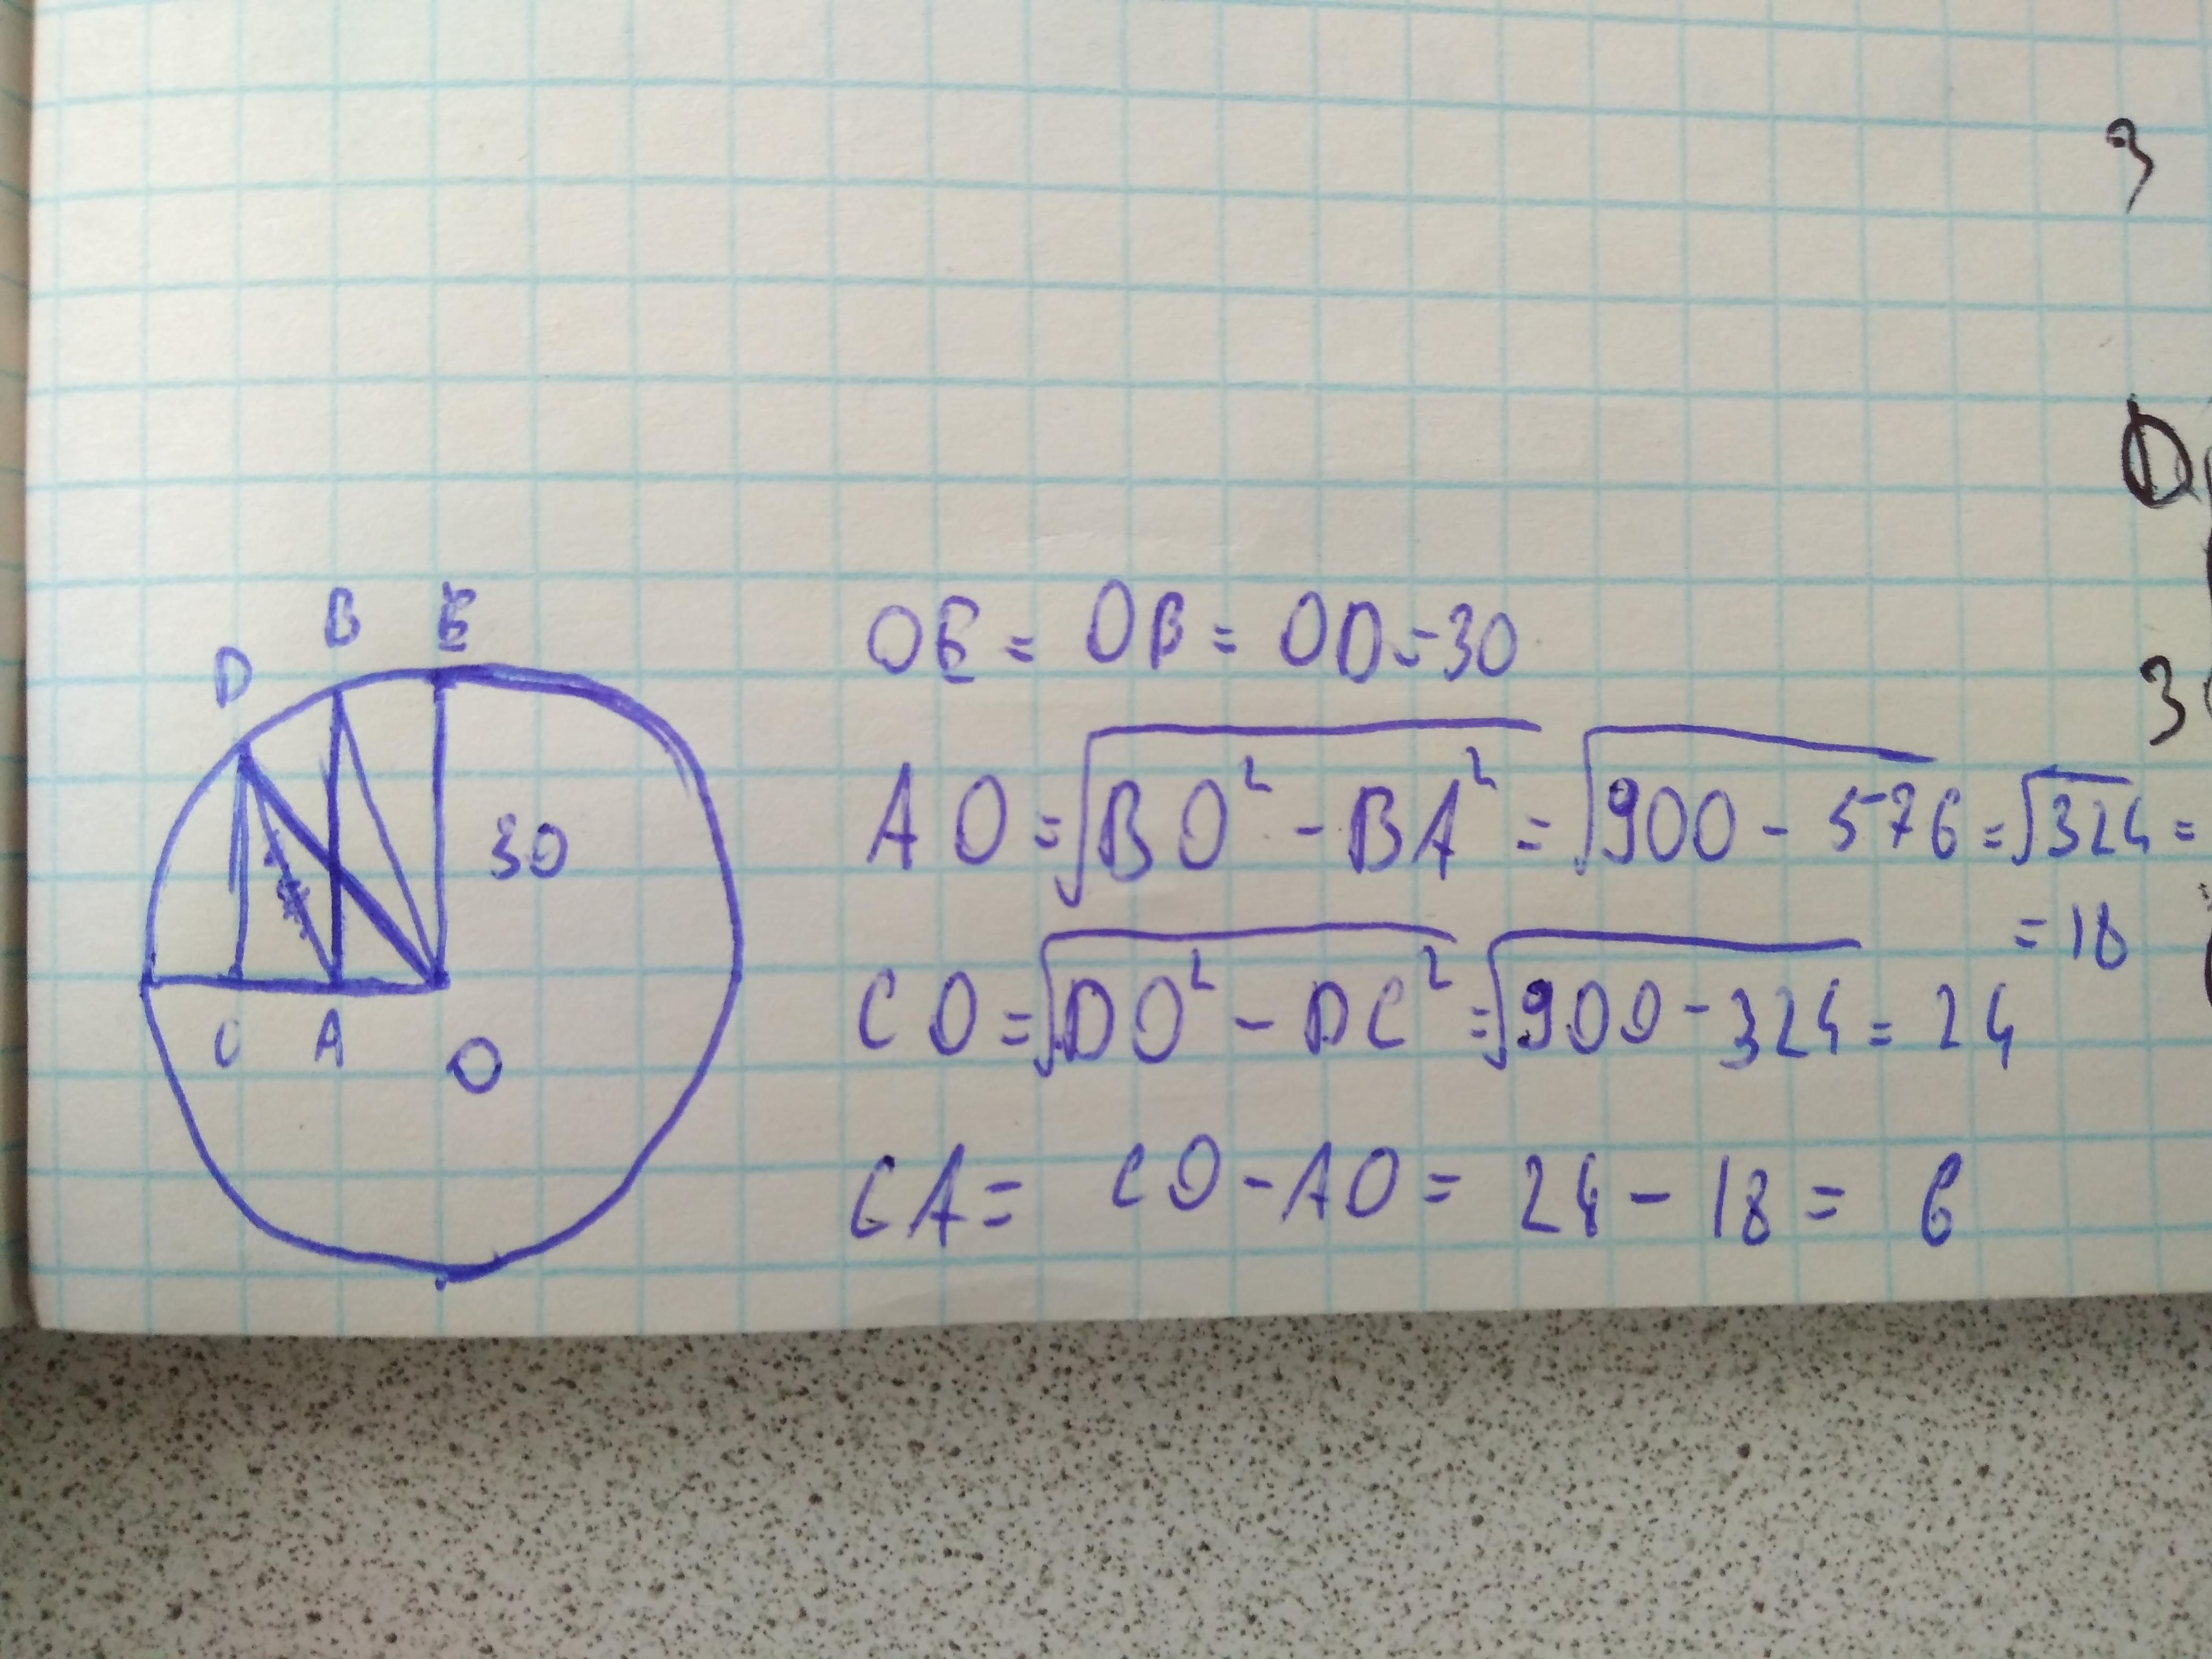 B E
D
30
C A O
OE = OB = OD = 30
AO = √BO² - BA² = √900 - 576 = √324 =
= 18
CO = √DO² - DC² = √900 - 324 = 24
CA = CO - AO = 24 - 18 = 6
3
D
3